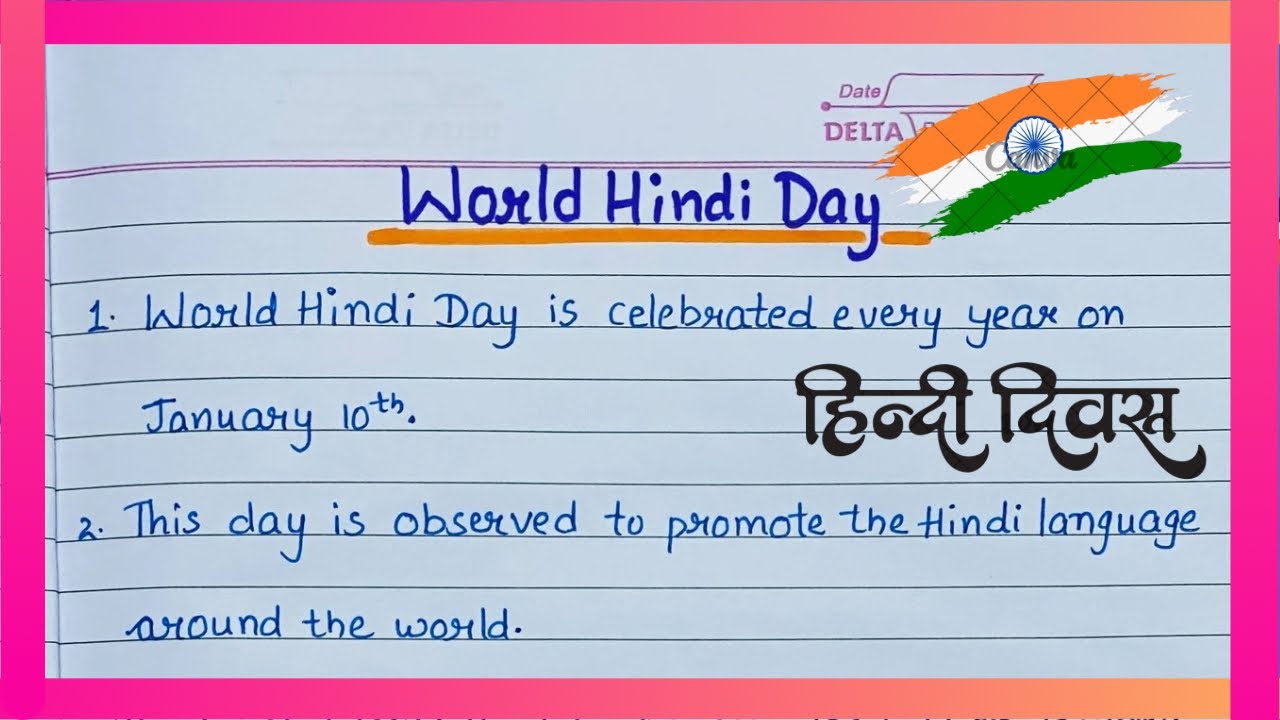 Date
DELTA
Canva
World Hindi Day
1. World Hindi Day is celebrated every year on
January 10th.
हिन्दी दिवस
2. This day is observed to promote the Hindi language
around the world.